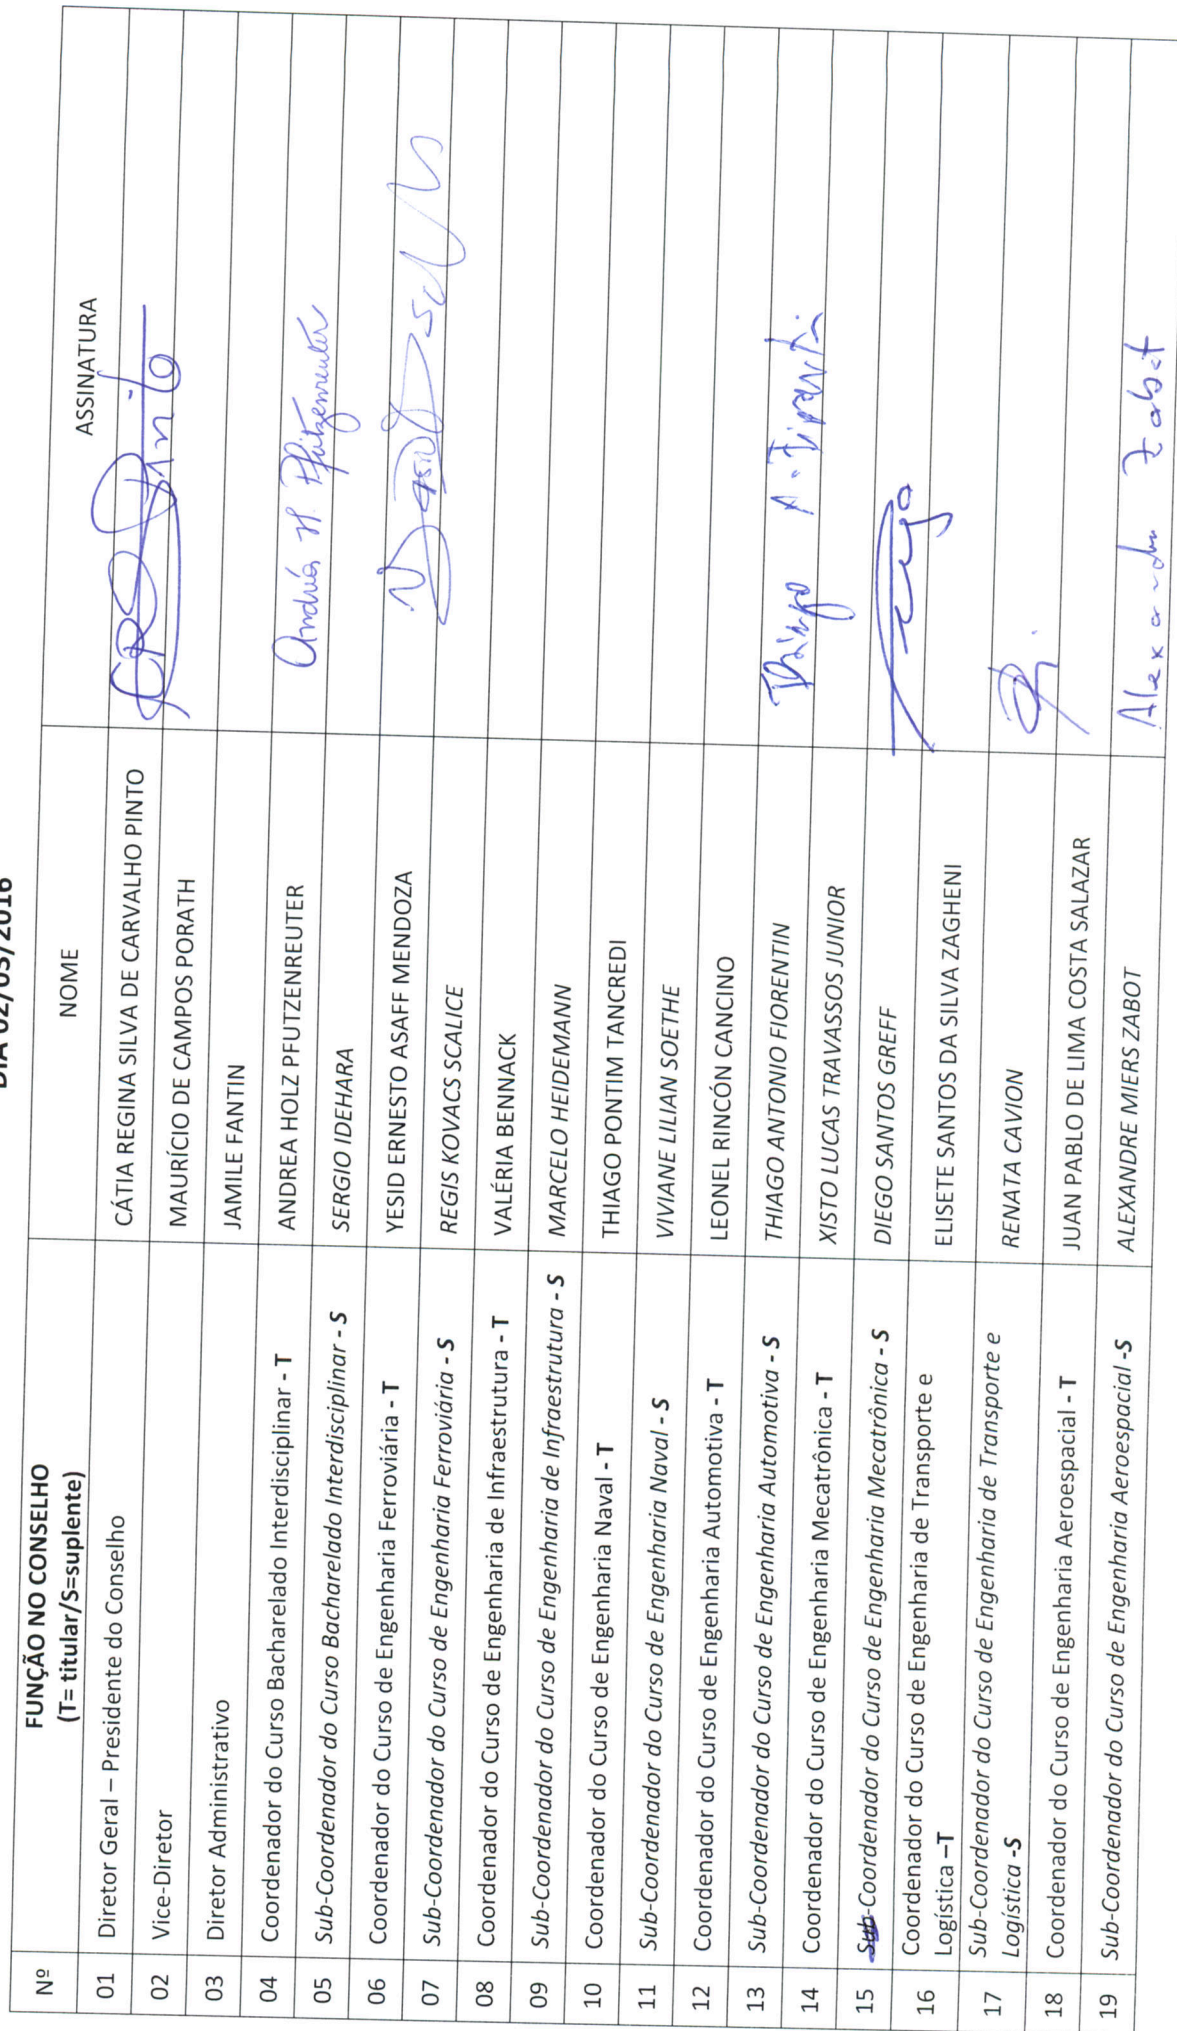 DIA 02/03/2016
Nº FUNÇÃO NO CONSELHO NOME ASSINATURA
(T= titular/S=suplente)
01 Diretor Geral – Presidente do Conselho CÁTIA REGINA SILVA DE CARVALHO PINTO
02 Vice-Diretor MAURÍCIO DE CAMPOS PORATH
03 Diretor Administrativo JAMILE FANTIN
04 Coordenador do Curso Bacharelado Interdisciplinar - T ANDREA HOLZ PFUTZENREUTER Andréa H. Pfützenreuter
05 Sub-Coordenador do Curso Bacharelado Interdisciplinar - S SERGIO IDEHARA
06 Coordenador do Curso de Engenharia Ferroviária - T YESID ERNESTO ASAFF MENDOZA
07 Sub-Coordenador do Curso de Engenharia Ferroviária - S REGIS KOVACS SCALICE
08 Coordenador do Curso de Engenharia de Infraestrutura - T VALÉRIA BENNACK
09 Sub-Coordenador do Curso de Engenharia de Infraestrutura - S MARCELO HEIDEMANN
10 Coordenador do Curso de Engenharia Naval - T THIAGO PONTIM TANCREDI
11 Sub-Coordenador do Curso de Engenharia Naval - S VIVIANE LILIAN SOETHE
12 Coordenador do Curso de Engenharia Automotiva - T LEONEL RINCÓN CANCINO
13 Sub-Coordenador do Curso de Engenharia Automotiva - S THIAGO ANTONIO FIORENTIN Thiago A. Fiorentin
14 Coordenador do Curso de Engenharia Mecatrônica - T XISTO LUCAS TRAVASSOS JUNIOR
15 Sub-Coordenador do Curso de Engenharia Mecatrônica - S DIEGO SANTOS GREFF
16 Coordenador do Curso de Engenharia de Transporte e ELISETE SANTOS DA SILVA ZAGHENI
Logística –T
17 Sub-Coordenador do Curso de Engenharia de Transporte e RENATA CAVION
Logística -S
18 Coordenador do Curso de Engenharia Aeroespacial - T JUAN PABLO DE LIMA COSTA SALAZAR
19 Sub-Coordenador do Curso de Engenharia Aeroespacial -S ALEXANDRE MIERS ZABOT Alexandre Zabot